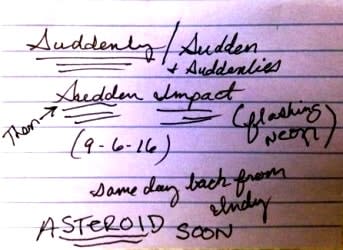 Suddenly / Sudden
+ Suddenlies
Then → Sudden Impact
(flashing
Neon)
(9-6-16)
same day back from
Indy
ASTEROID SOON